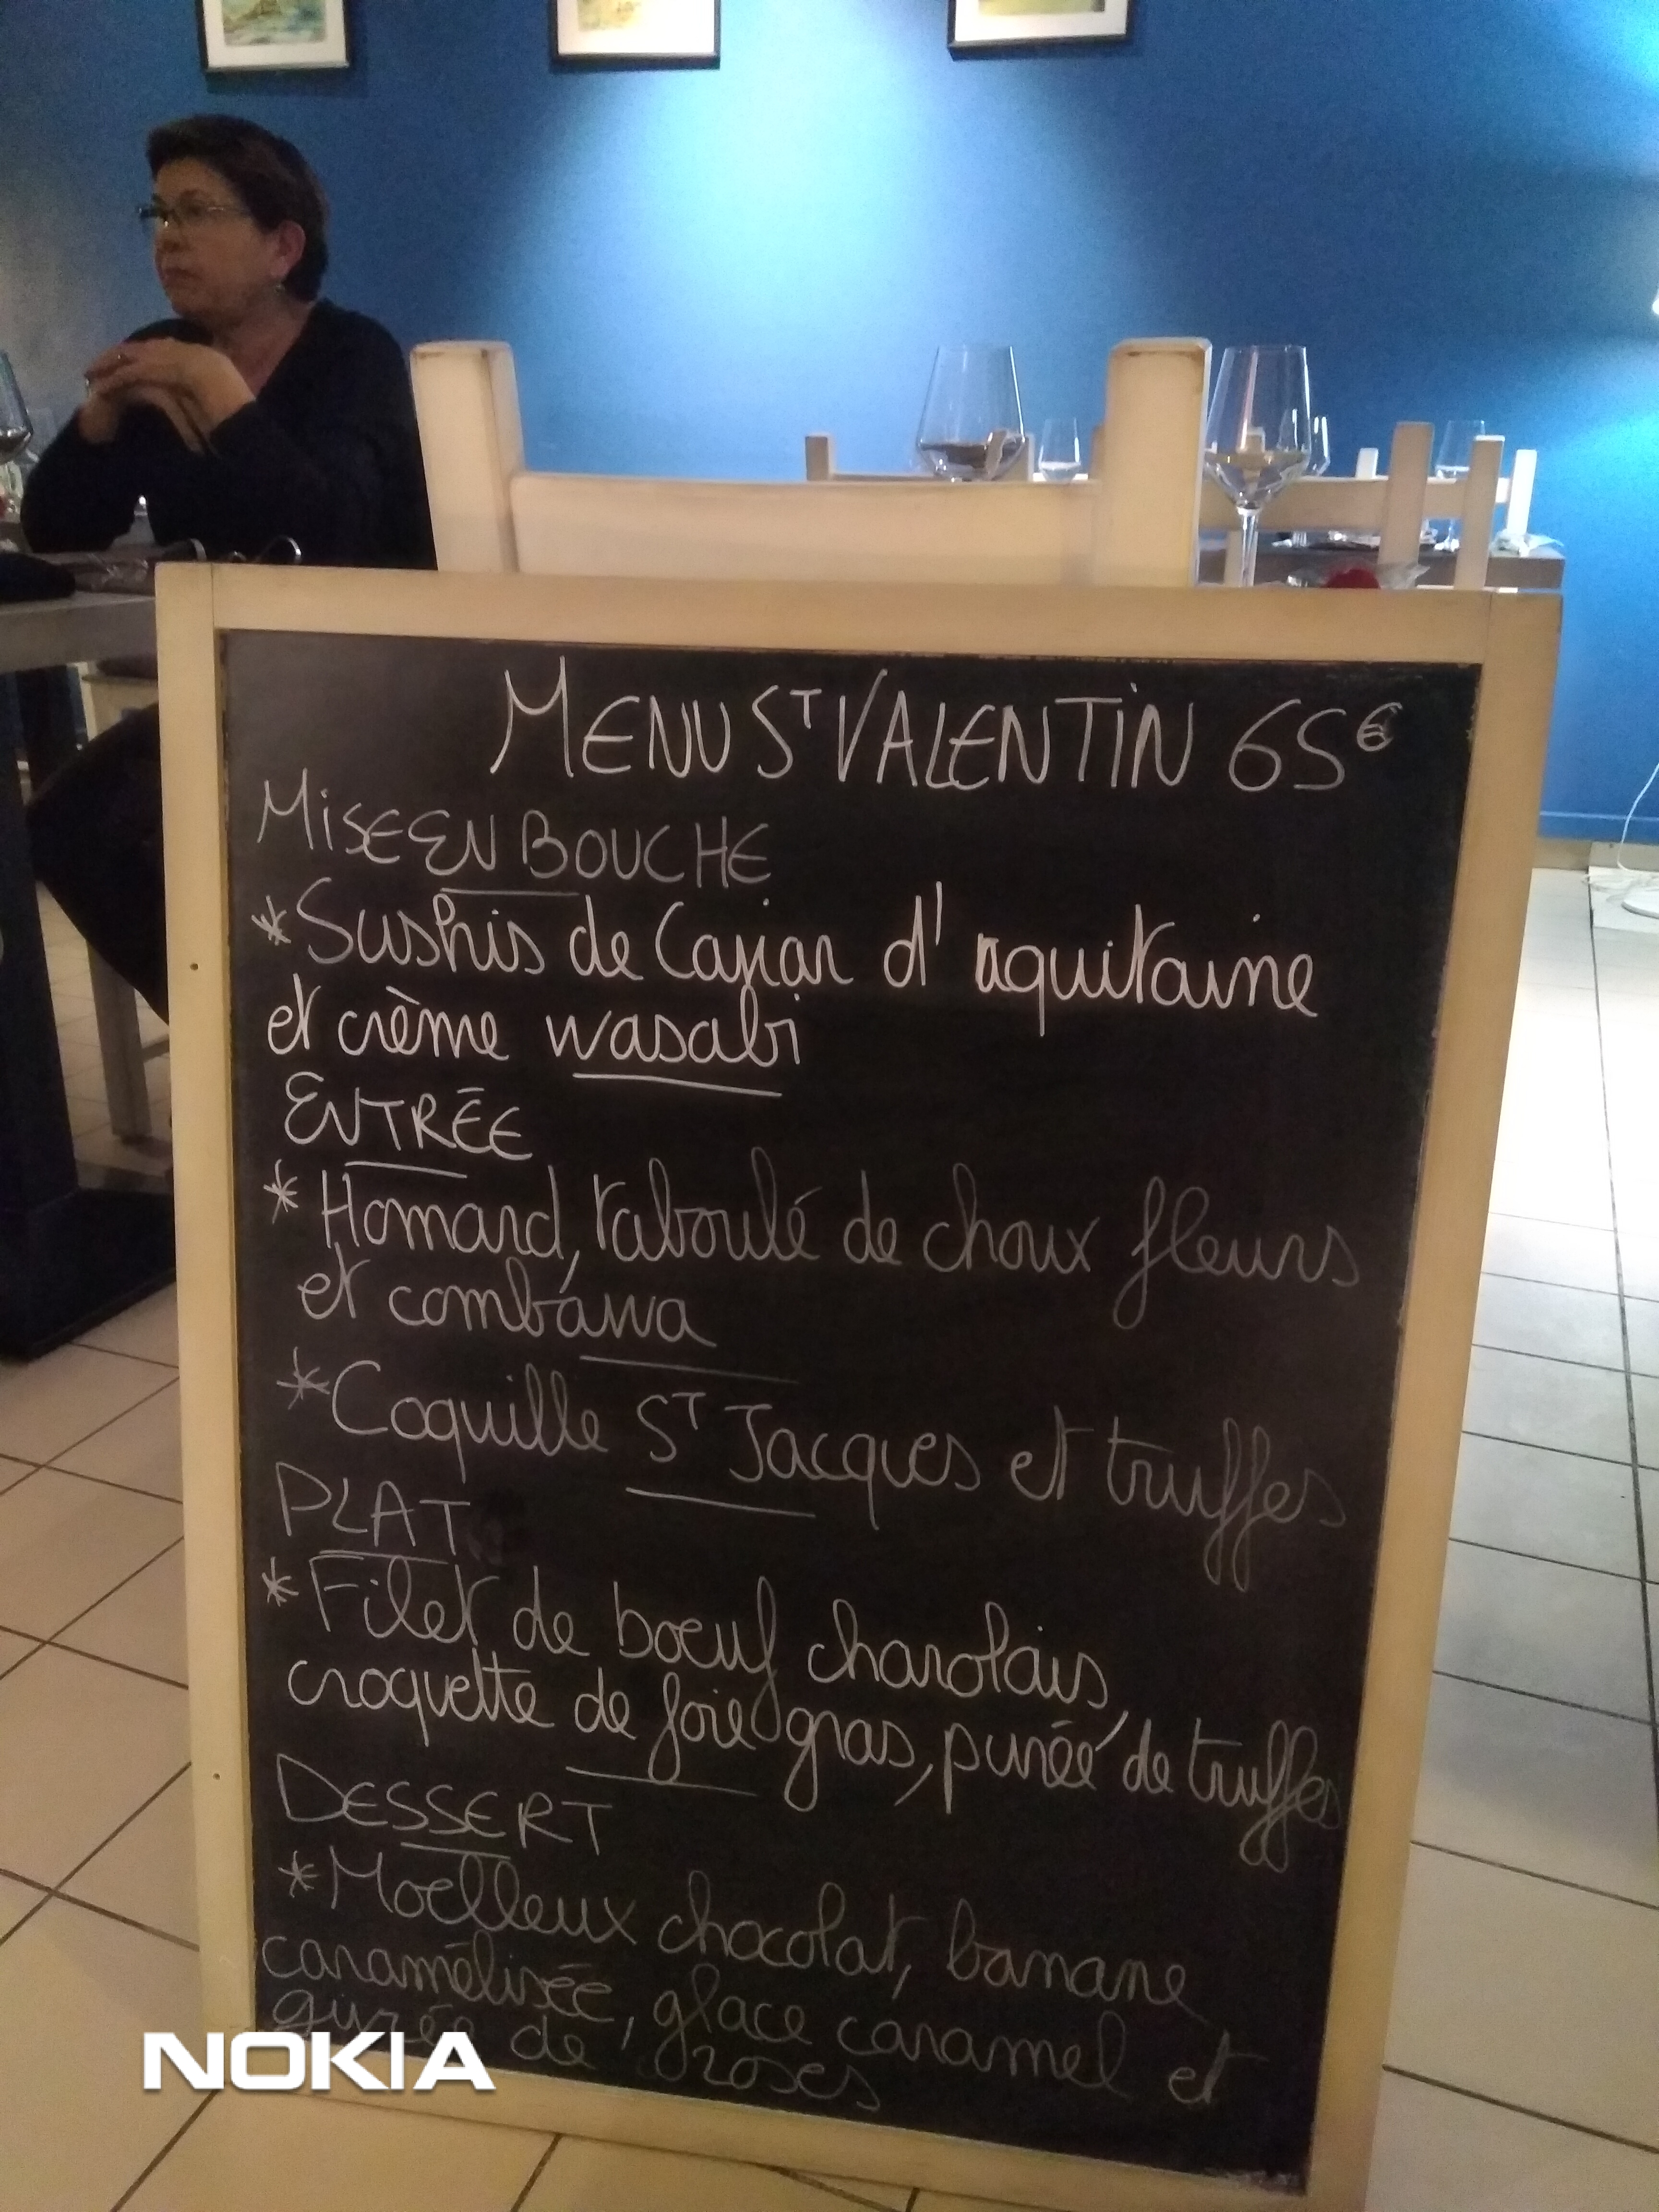 MENU ST VALENTIN 65€
MISE EN BOUCHE
*Sushis de Caviar d'aquitaine
et crème wasabi
ENTRÉE
*Homard, taboulé de choux fleurs
et combawa
*Coquille ST Jacques et truffes
PLAT
*Filet de boeuf charolais,
croquette de foie gras, purée de truffes
DESSERT
*Moelleux chocolat, banane
caramélisée, glace caramel et
givrée de roses
NOKIA